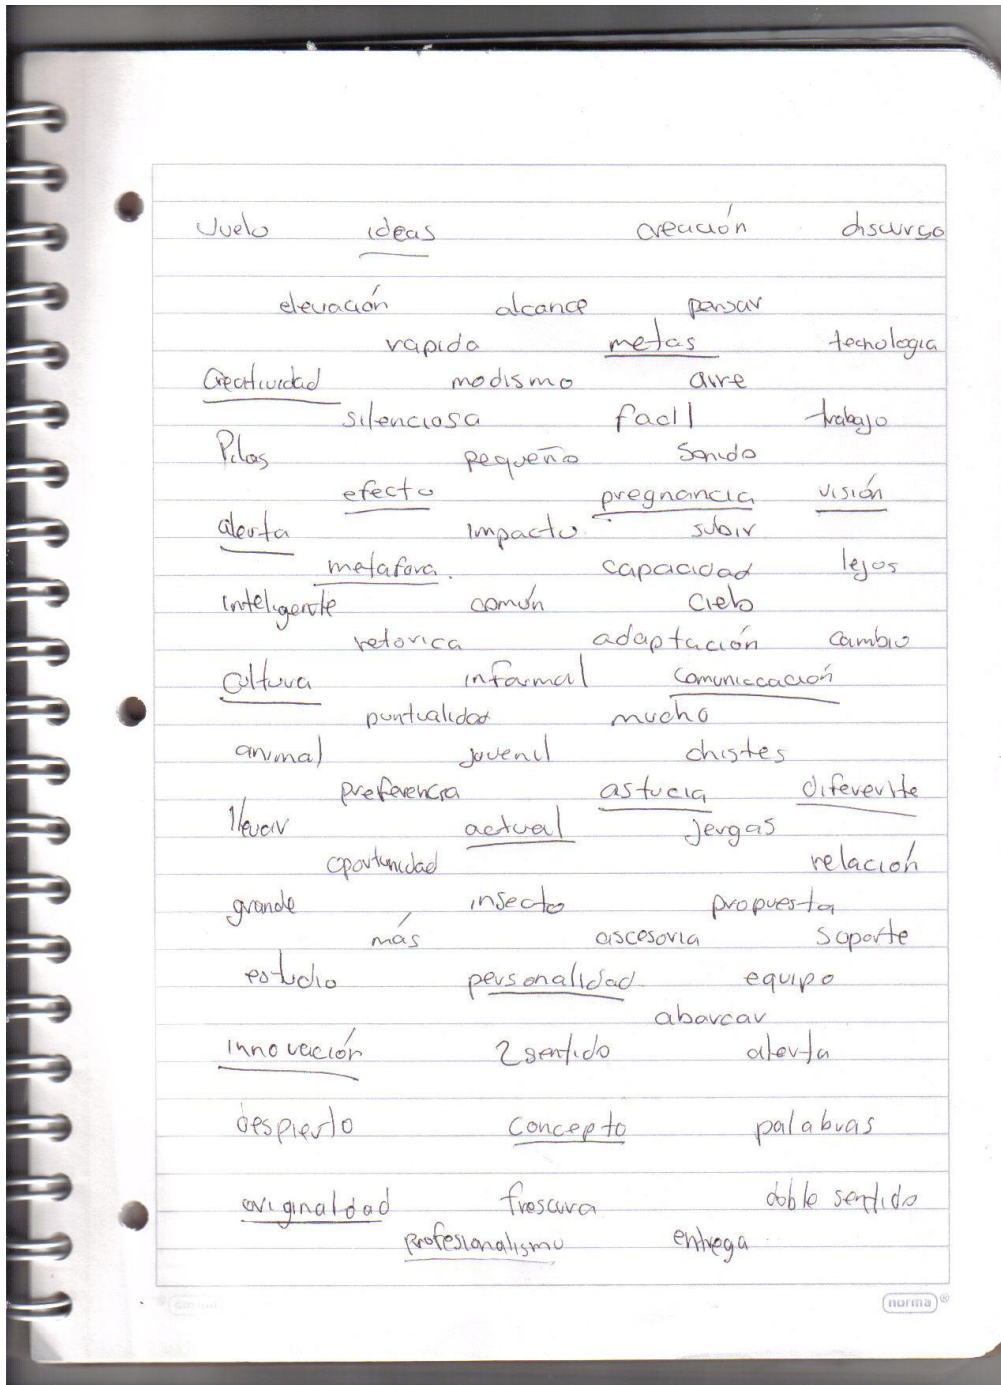 Vuelo ideas creación discurso
elevación alcance pensar
rapida metas tecnologia
Creatividad modismo aire
silenciosa facil trabajo
Pilas pequeño Sonido
efecto pregnancia visión
alerta impacto subir
metafora. capacidad lejos
inteligente común Cielo
retorica adaptación cambio
Cultura informal Comuniccación
puntualidad mucho
animal juvenil chistes
preferencia astucia diferente
llevar actual jergas
oportunidad relación
grande insecto propuesta
más ascesoria soporte
estudio personalidad equipo
abarcar
innovación 2 sentido alerta
despierto concepto palabras
originaldad frescura doble sentido
profesionalismo entrega
norma®